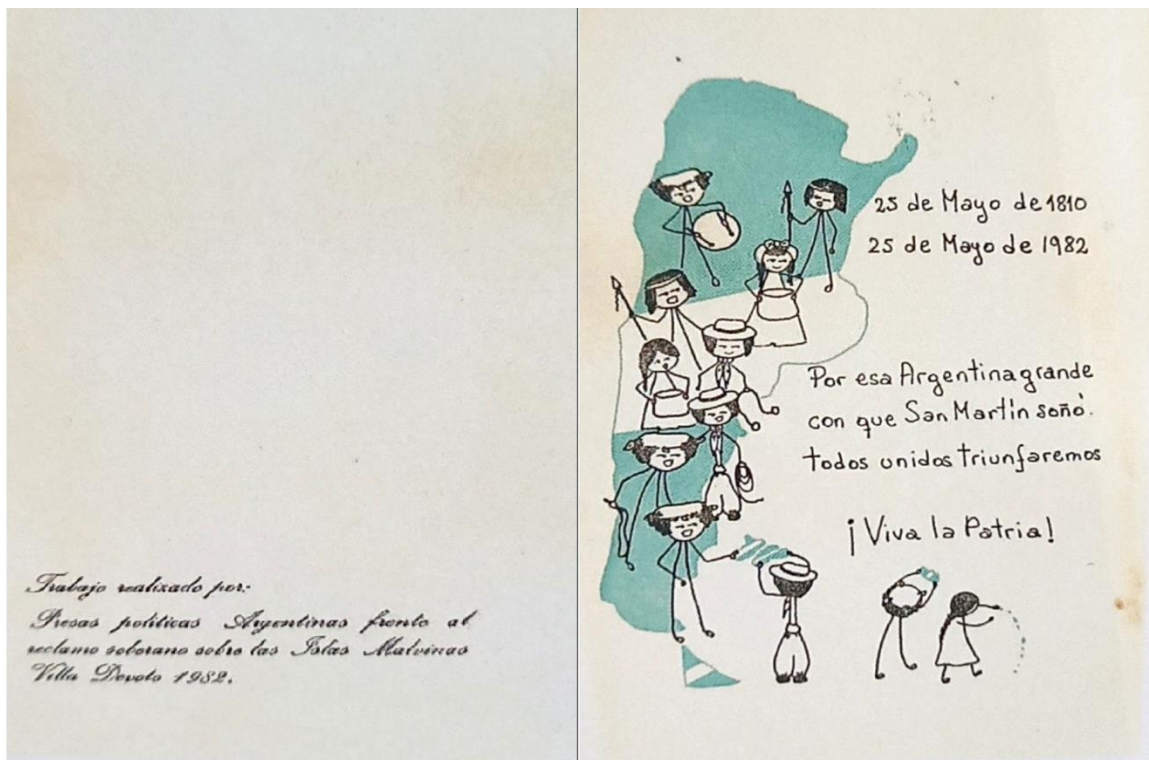 Trabajo realizado por:
Presas políticas Argentinas frente al
reclamo soberano sobre las Islas Malvinas
Villa Devoto 1982.
25 de Mayo de 1810
25 de Mayo de 1982
Por esa Argentina grande
con que San Martín soñó.
todos unidos triunfaremos
¡Viva la Patria!